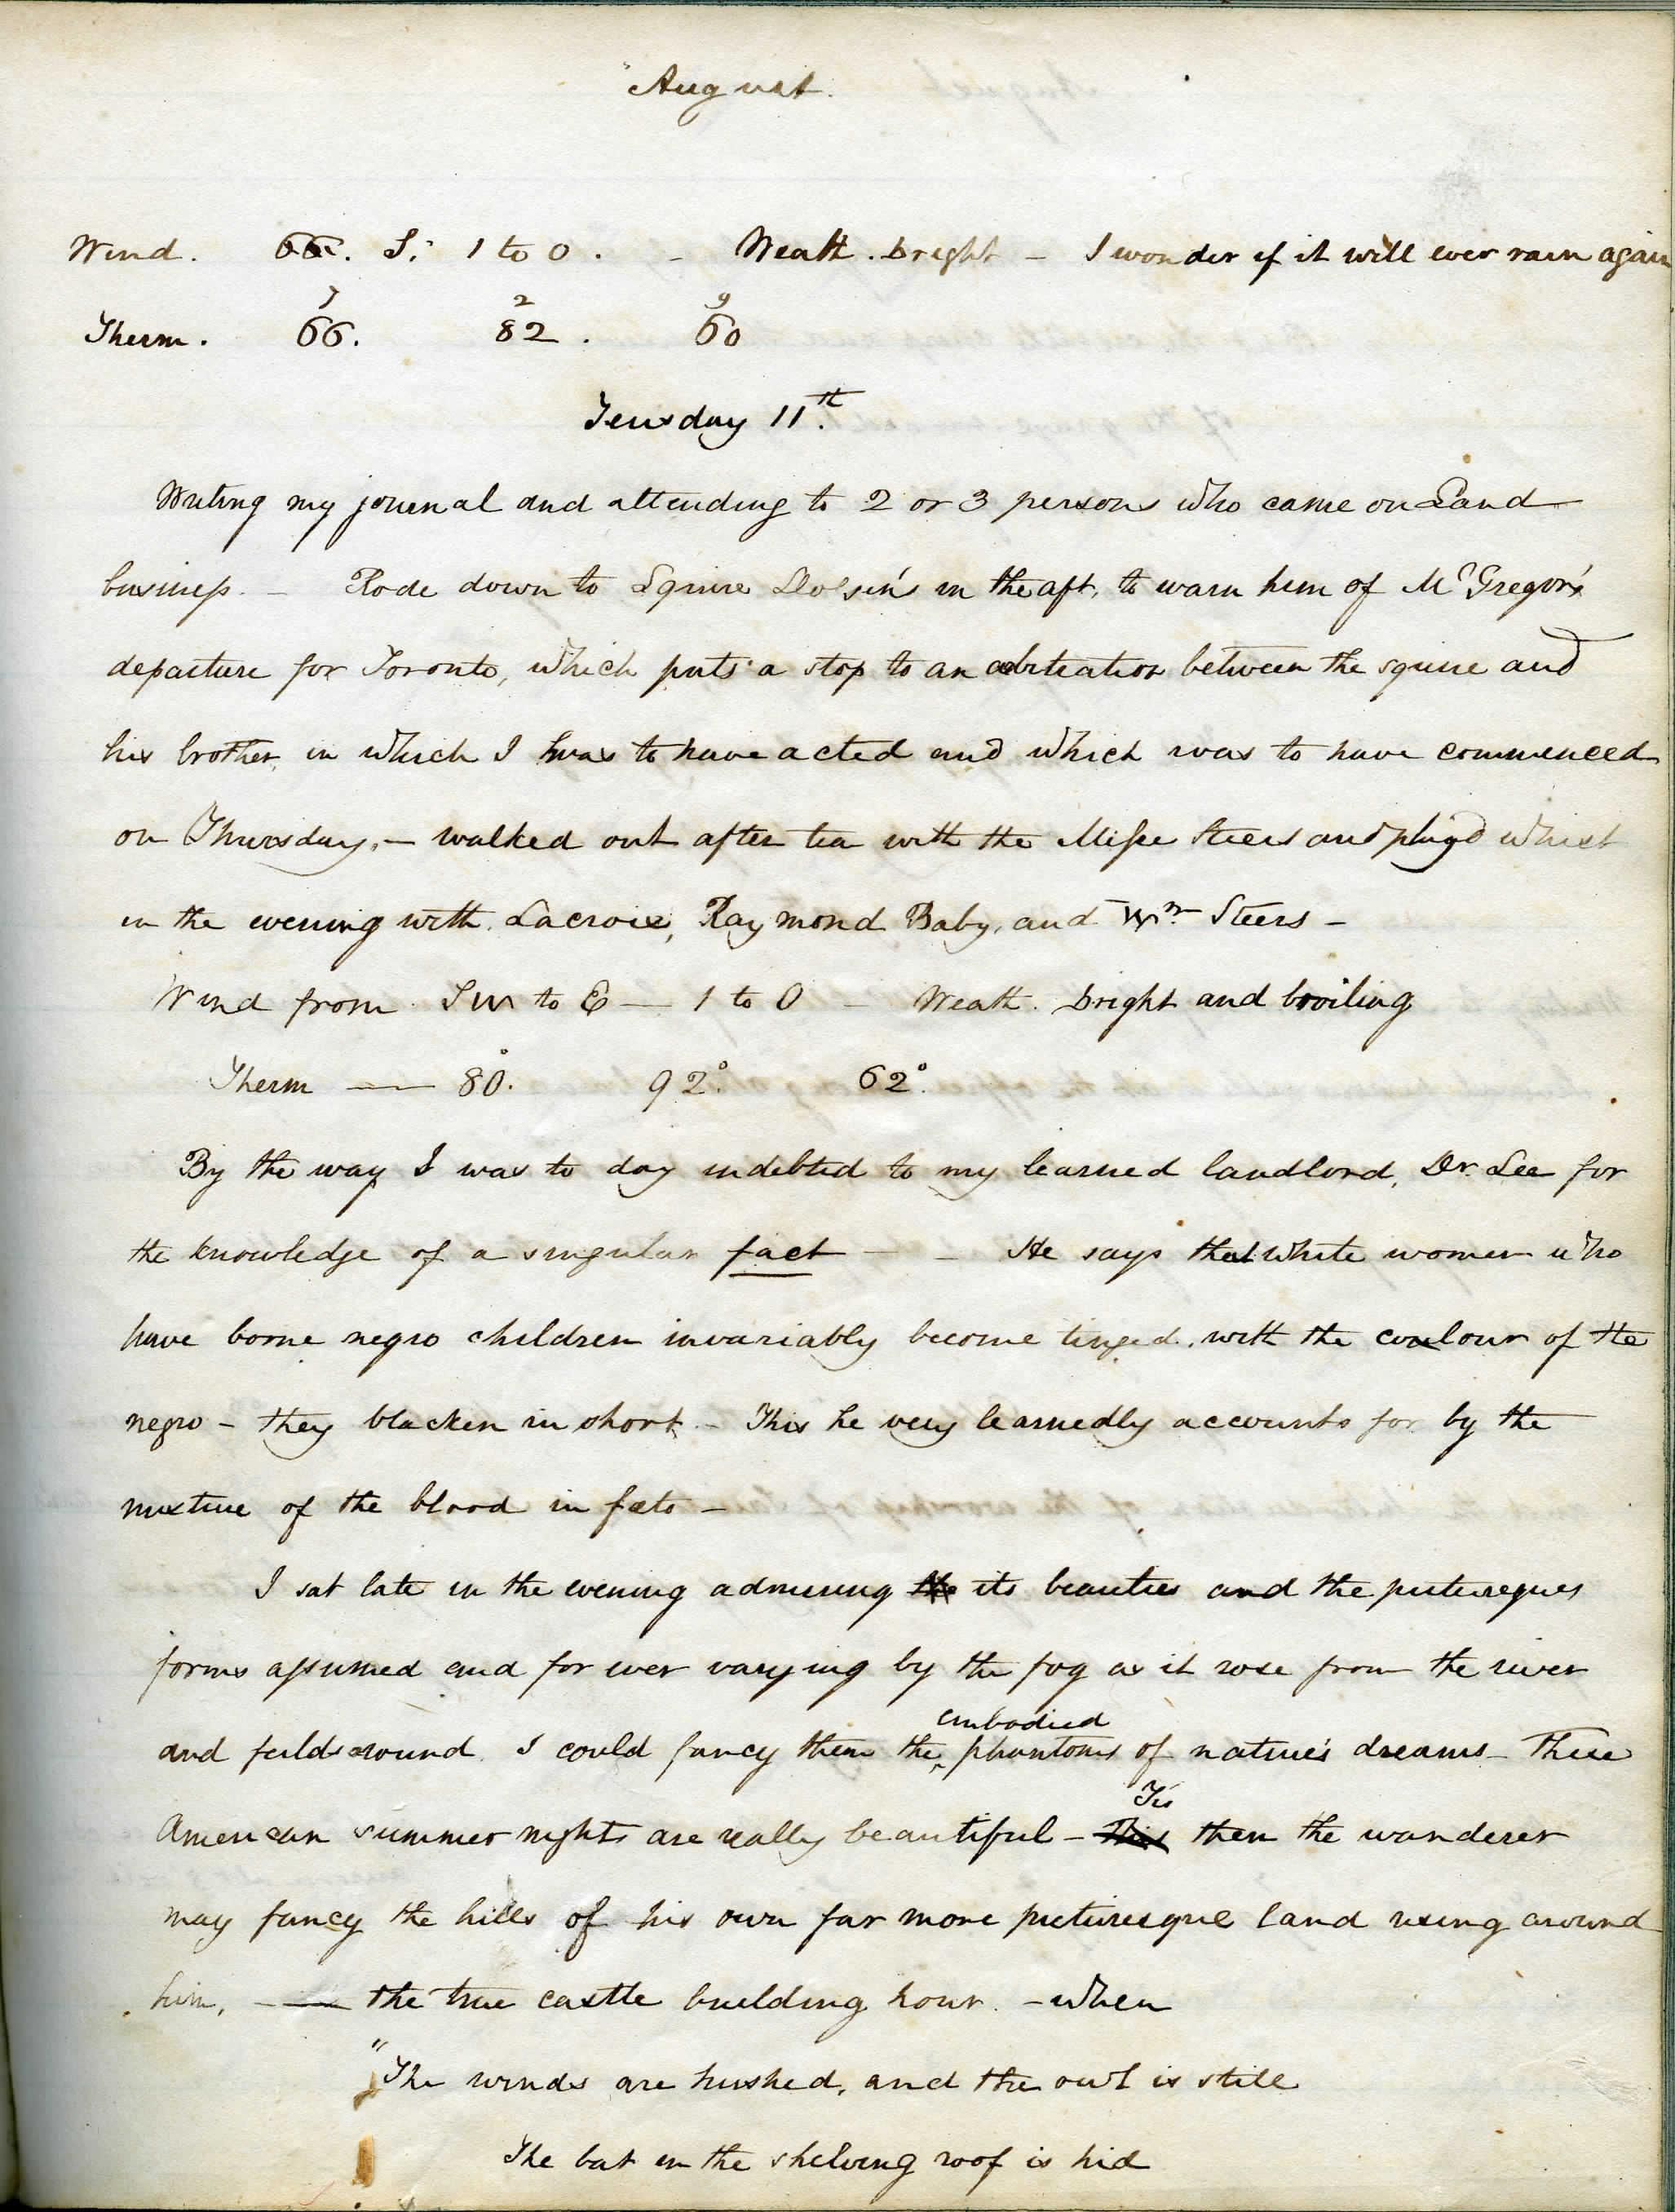 August.
Wind. 66. S. 1 to 0. - Weath. bright - I wonder if it will ever rain again
7 2 9
Therm. 66. 82. 60
Teusday 11th.
Writing my journal and attending to 2 or 3 persons who came on Land
business. - Rode down to Squire Dolsen's in the aft. to warn him of McGregor's
departure for Toronto, which puts a stop to an arbitration between the squire and
his brother, in which I was to have acted and which was to have commenced
on Thursday. - walked out after tea with the Misse Steers and play'd whist
in the evening with Lacroix, Raymond Baby, and Wm Steers -
Wind from SW to E — 1 to 0 - Weath. bright and broiling
Therm — 80°. 92°. 62°.
By the way I was to day indebted to my learned landlord, Dr. Lee for
the knowledge of a singular fact - - He says that white women who
have borne negro children invariably become tinged with the coulour of the
negro - they blacken in short - This he very learnedly accounts for by the
mixture of the blood in fœto -
I sat late in the evening admiring the its beauties and the picturesques
forms assumed and for ever varying by the fog as it rose from the river
embodied
and feilds around. I could fancy them the phantoms of nature's dreams - These
Tis
American summer nights are really beautiful - This then the wanderer
may fancy the hills of his own far more picturesque land rising around
him, — the true castle building hour. - when
"The winds are hushed, and the owl is still
The bat in the shelving roof is hid